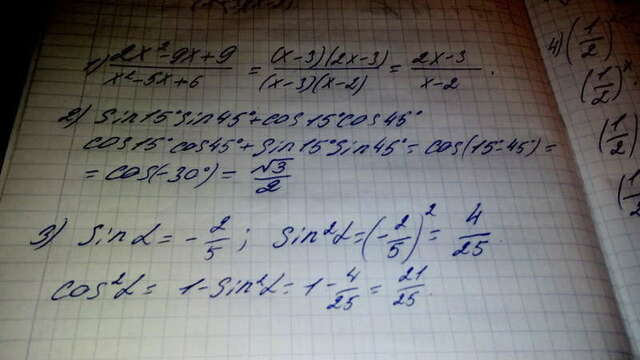 1) (2x²-9x+9)/(x²-5x+6) = ((x-3)(2x-3))/((x-3)(x-2)) = (2x-3)/(x-2).
2) sin15°sin45°+cos15°cos45°
cos15°cos45°+sin15°sin45°=cos(15°-45°)=
=cos(-30°)=√3/2
3) sinα=-2/5; sin²α=(-2/5)²=4/25
cos²α=1-sin²α=1-4/25=21/25.
4) (1/2)
(1/2)ˣ
(1/2)